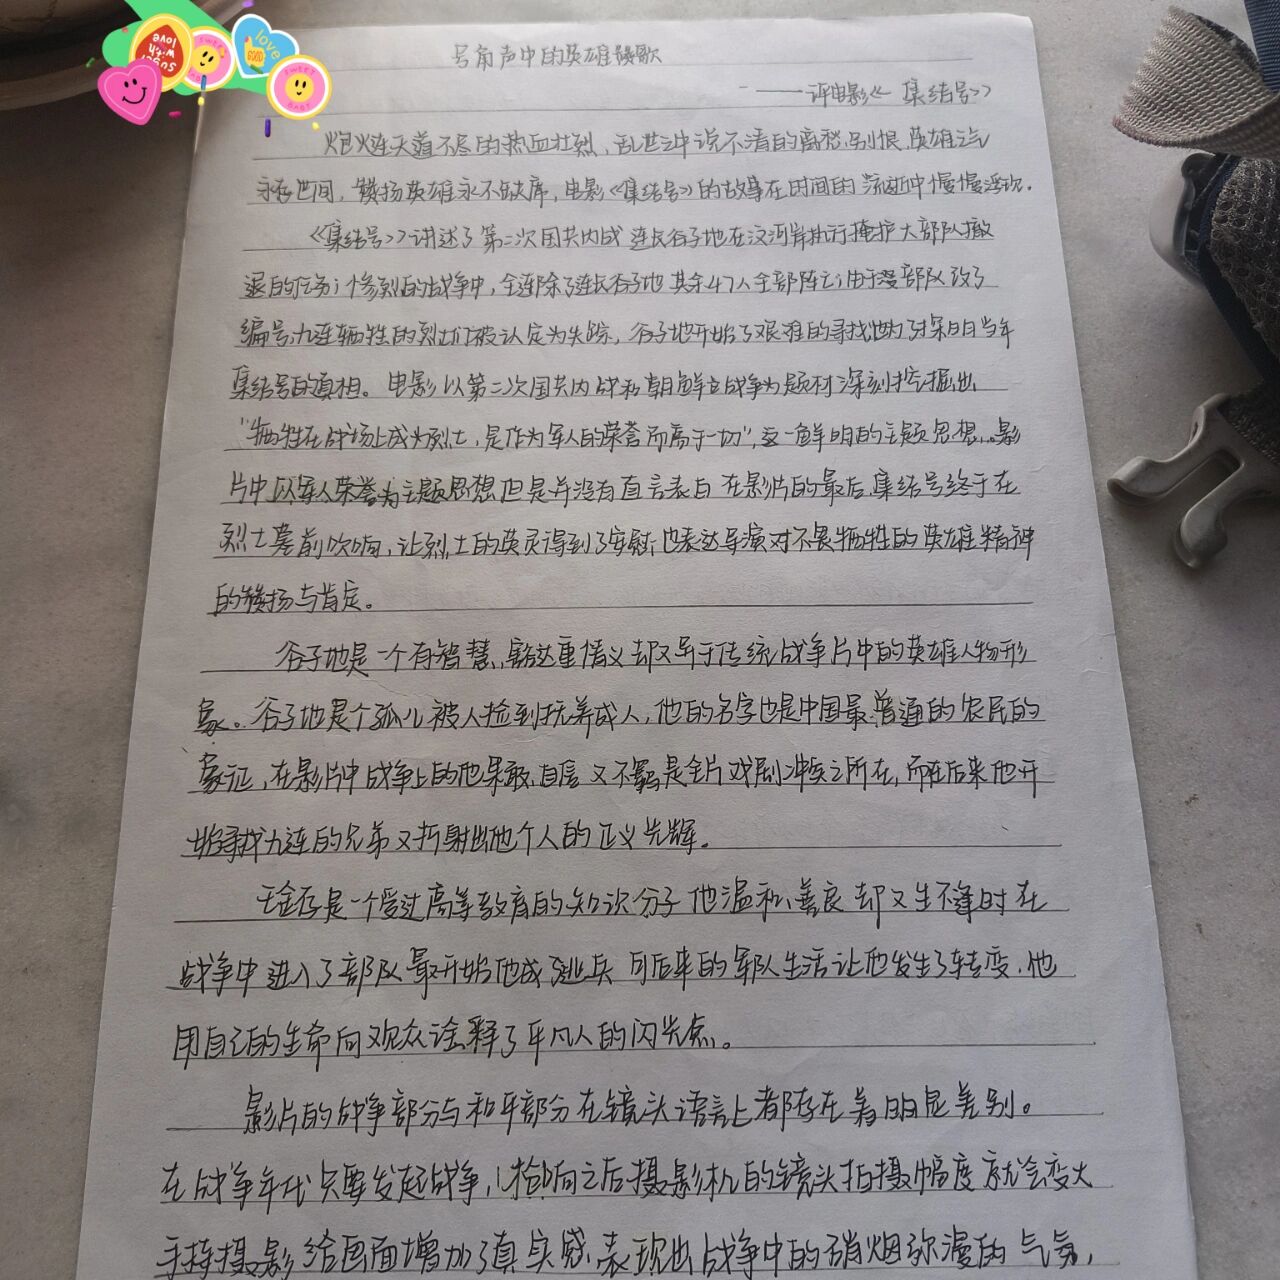 号角声中的英雄赞歌
——评电影《集结号》
炮火连天道不尽的热血壮烈，乱世之中说不清的离愁别恨，英雄之气
永存世间，赞扬英雄永不缺席，电影《集结号》的故事在时间的流逝中慢慢浮现。
《集结号》讲述了第二次国共内战连长谷子地在汶河岸执行掩护大部队撤
退的任务，惨烈的战争中，全连除了连长谷子地其余47人全部阵亡，由于部队改了
编号，九连牺牲的烈士们被认定为失踪，谷子地开始了艰难的寻找他为了探明当年
集结号的真相。电影以第二次国共内战和朝鲜战争为题材深刻挖掘出
"牺牲在战场上成为烈士，是作为军人的荣誉而高于一切"，这一鲜明的主题思想。影
片中以军人荣誉为主题思想但是并没有直言表白在影片的最后集结号终于在
烈士墓前吹响，让烈士的英灵得到了安慰，也表达导演对不畏牺牲的英雄精神
的赞扬与肯定。
谷子地是一个有智慧、豁达重情义却又异于传统战争片中的英雄人物形
象。谷子地是个孤儿被人捡到抚养成人，他的名字也是中国最普通的农民的
象征，在影片中战争上的他果敢、自信又不是全片戏剧冲突之所在，而在后来他开
始寻找九连的兄弟又折射出他个人的正义光辉。
王金存是一个受过高等教育的知识分子他温和、善良却又生不逢时在
战争中进入了部队最开始他成了逃兵可后来的军队生活让他发生了转变，他
用自己的生命向观众诠释了平凡人的闪光点。
影片的战争部分与和平部分在镜头语言上都存在着明显差别。
在战争年代只要发起战争，枪响之后摄影机的镜头拍摄幅度就会变大
手持摄影给画面增加了真实感，表现出战争中的硝烟弥漫的气氛，
sweet
love
GOOD
love
SWEET
BABY